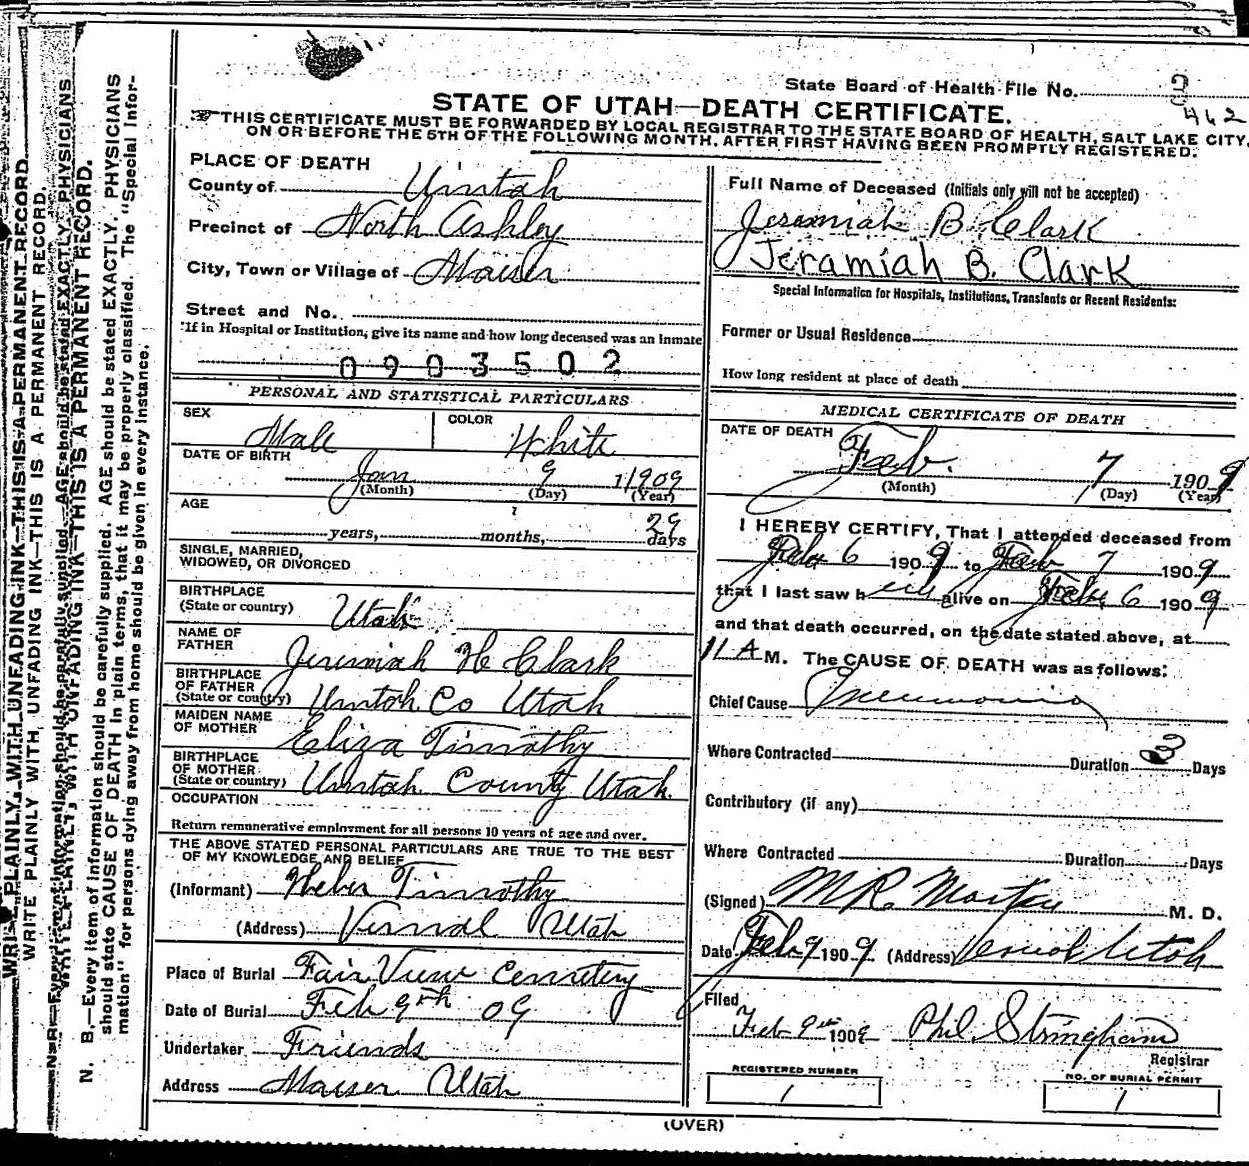 State Board of Health File No. 3
462
STATE OF UTAH—DEATH CERTIFICATE.
THIS CERTIFICATE MUST BE FORWARDED BY LOCAL REGISTRAR TO THE STATE BOARD OF HEALTH, SALT LAKE CITY,
ON OR BEFORE THE 5TH OF THE FOLLOWING MONTH, AFTER FIRST HAVING BEEN PROMPTLY REGISTERED.
PLACE OF DEATH
County of Uintah
Precinct of North Ashley
City, Town or Village of Maiser
Street and No.
If in Hospital or Institution, give its name and how long deceased was an inmate
0903502
PERSONAL AND STATISTICAL PARTICULARS
SEX Male COLOR White
DATE OF BIRTH
Jan 9 1909
(Month) (Day) (Year)
AGE
years, months, 29 days
SINGLE, MARRIED,
WIDOWED, OR DIVORCED
BIRTHPLACE
(State or country) Utah
NAME OF
FATHER Jeremiah H Clark
BIRTHPLACE
OF FATHER
(State or country) Uintah Co Utah
MAIDEN NAME
OF MOTHER Eliza Timothy
BIRTHPLACE
OF MOTHER
(State or country) Uintah County Utah
OCCUPATION
Return remunerative employment for all persons 10 years of age and over.
THE ABOVE STATED PERSONAL PARTICULARS ARE TRUE TO THE BEST
OF MY KNOWLEDGE AND BELIEF
(Informant) Heber Timothy
(Address) Vernal Utah
Place of Burial Fair View Cemetery
Date of Burial Feb 9th 09
Undertaker Friends
Address Maiser Utah
Full Name of Deceased (Initials only will not be accepted)
Jeremiah B Clark
Jeramiah B. Clark
Special Information for Hospitals, Institutions, Transients or Recent Residents:
Former or Usual Residence
How long resident at place of death
MEDICAL CERTIFICATE OF DEATH
DATE OF DEATH
Feb. 7 1909
(Month) (Day) (Year)
I HEREBY CERTIFY, That I attended deceased from
Feb 6 1909 to Feb 7 1909
that I last saw h im alive on Feb 6 1909
and that death occurred, on the date stated above, at
11 A M. The CAUSE OF DEATH was as follows:
Chief Cause Pneumonia
Where Contracted Duration 3 Days
Contributory (if any)
Where Contracted Duration Days
(Signed) M. D.
Date Feb 9 1909 (Address) Vernal Utah
Filed
Feb 9th 1909 Phil Stringham
Registrar
REGISTERED NUMBER
1
NO. OF BURIAL PERMIT
1
(OVER)
WRITE PLAINLY WITH UNFADING INK—THIS IS A PERMANENT RECORD.
N. B.—Every item of information should be carefully supplied. AGE should be stated EXACTLY. PHYSICIANS
should state CAUSE OF DEATH in plain terms, that it may be properly classified. The "Special Infor-
mation" for persons dying away from home should be given in every instance.